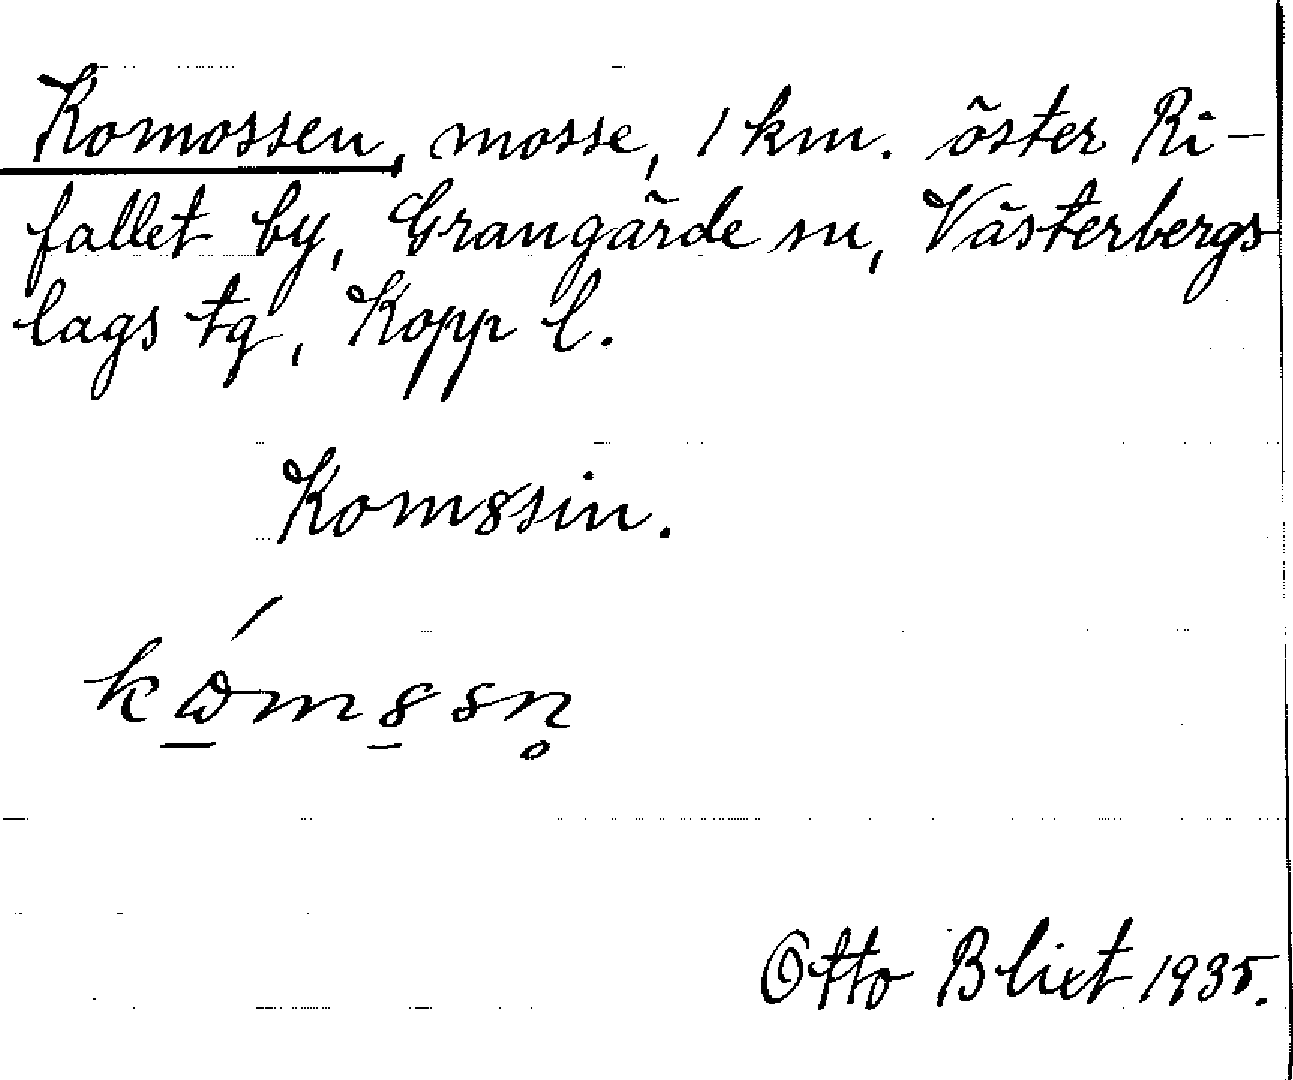 Komossen, mosse, 1 km. öster Ri-
fallet by, Grangärde sn, Västerbergs
lags tg, Kopp l.
Kom8ssin.
Otto Blixt 1935.